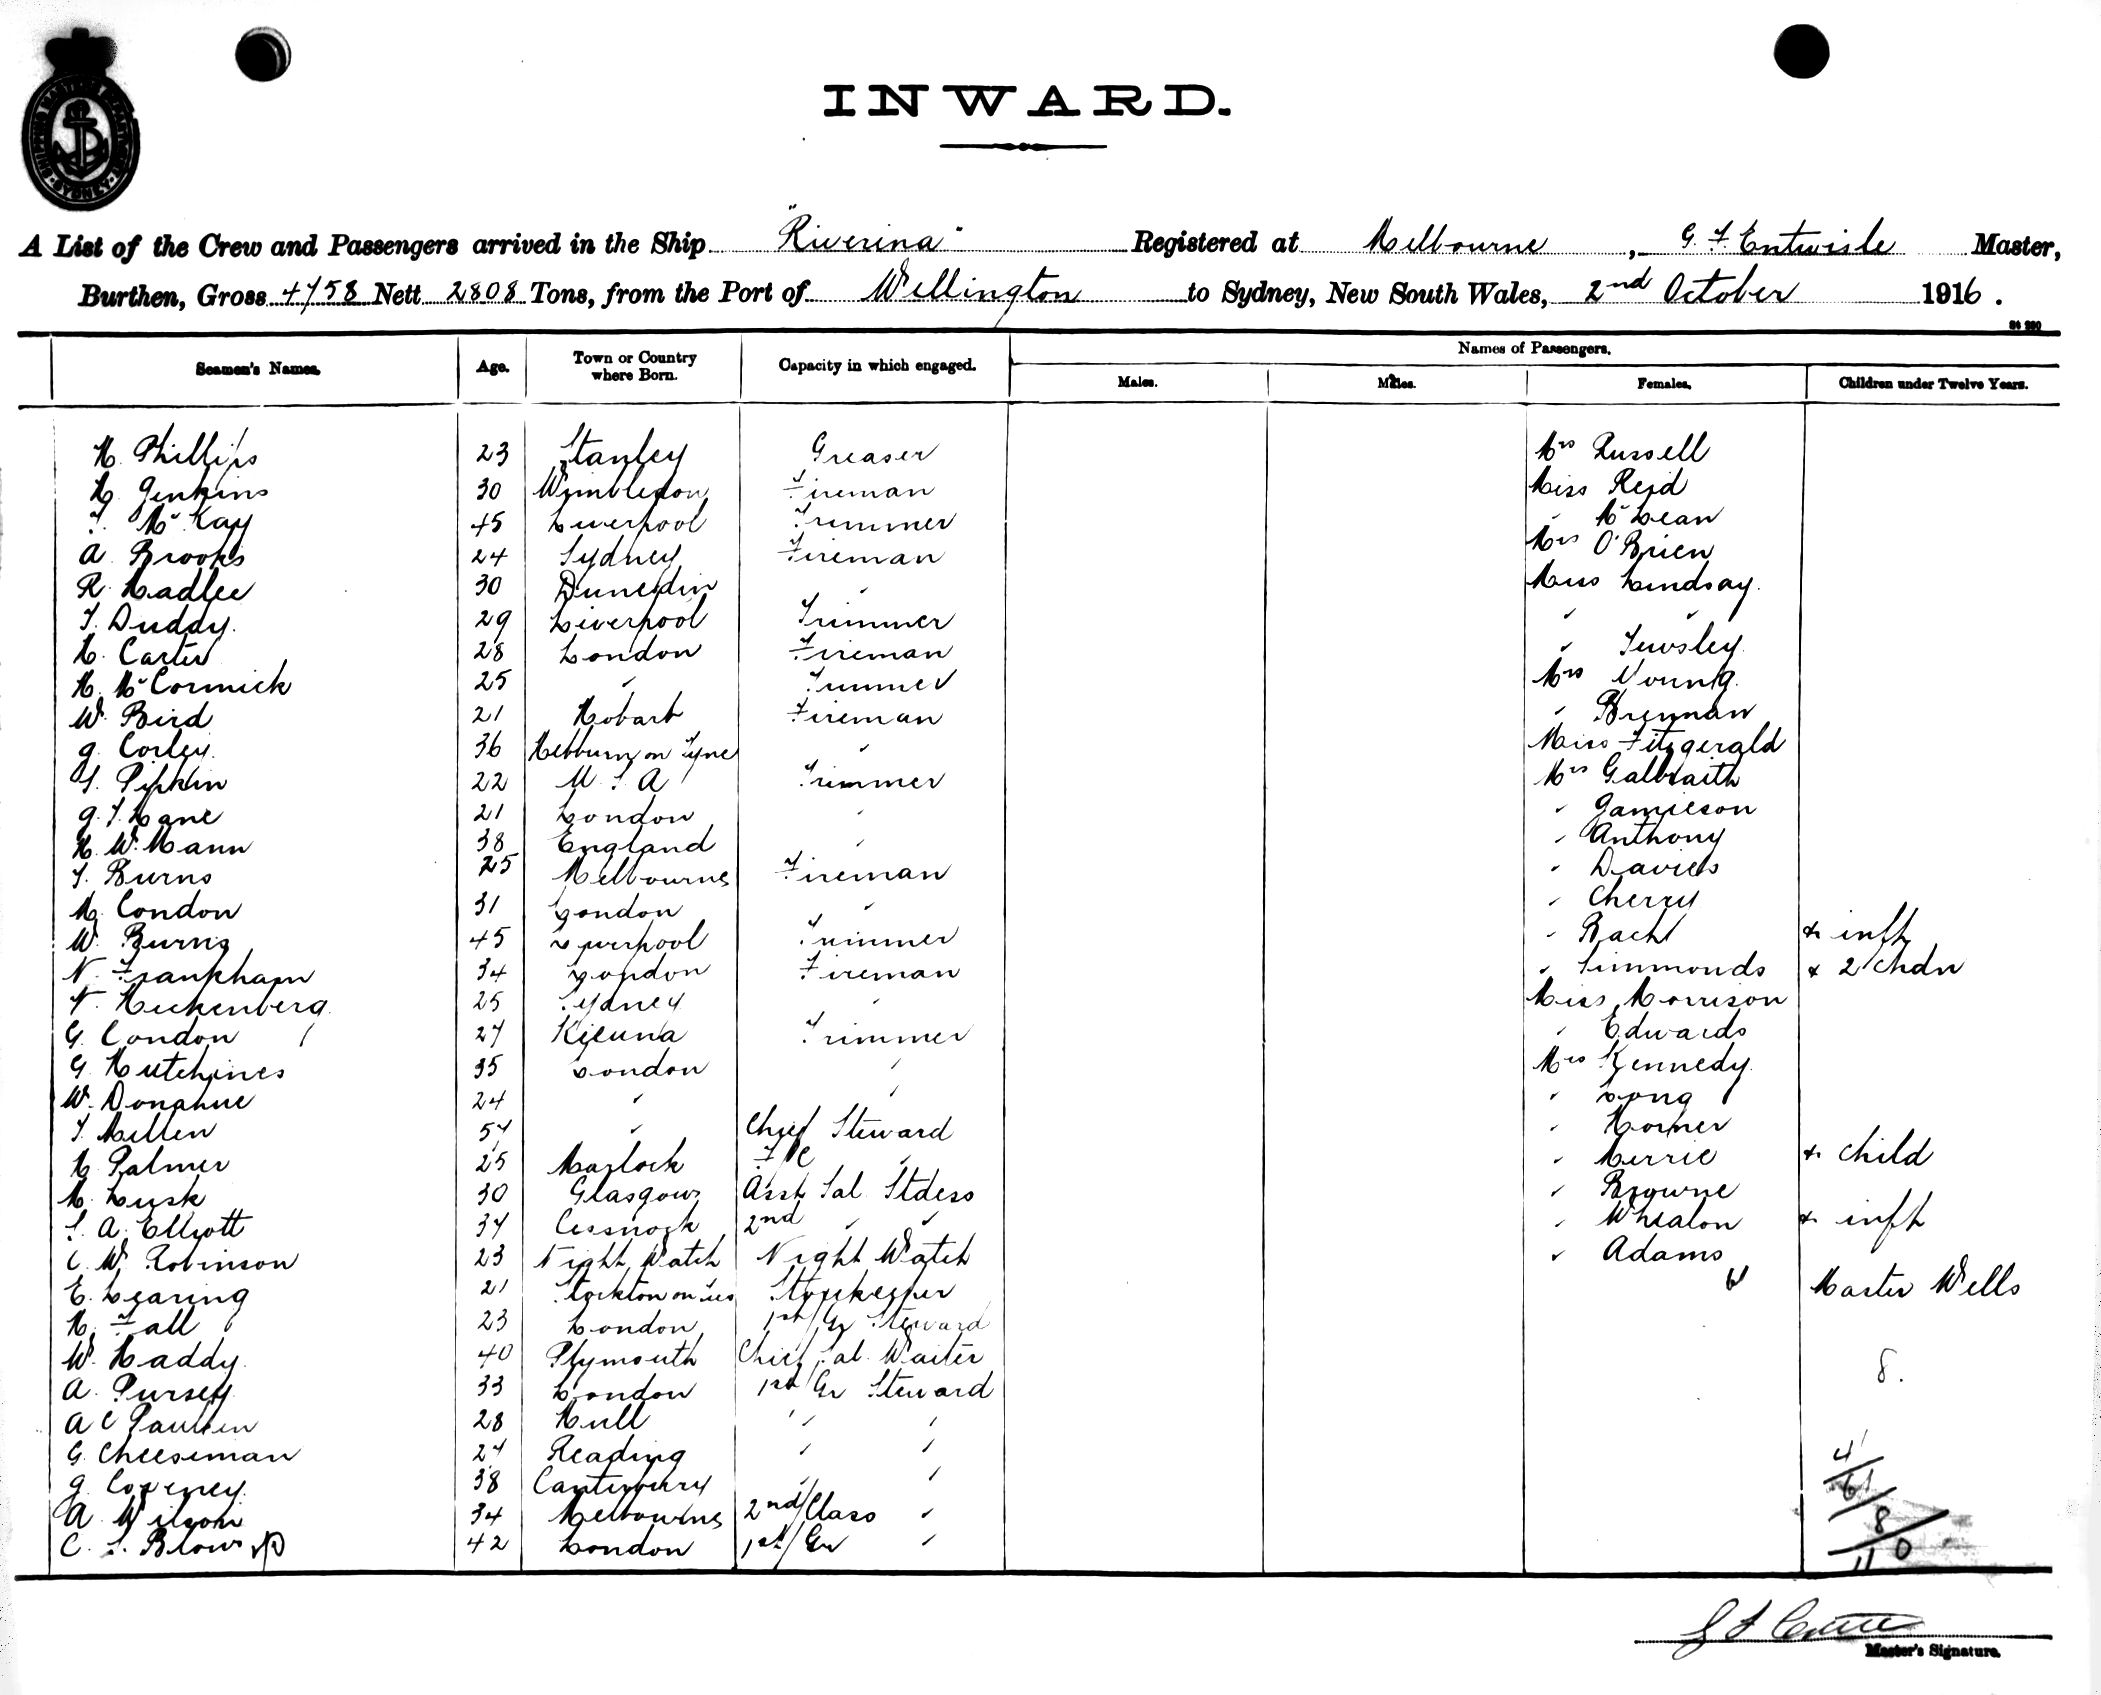 INWARD.
A List of the Crew and Passengers arrived in the Ship "Riverina" Registered at Melbourne, G. F. Entwisle Master,
Burthen, Gross 4758 Nett 2808 Tons, from the Port of Wellington to Sydney, New South Wales, 2nd October 1916.
Seamen's Names. Age. Town or Country where Born. Capacity in which engaged. Names of Passengers.
Males. Males. Females. Children under Twelve Years.
H. Phillips 23 Stanley Greaser Mrs Russell
H. Jenkins 30 Wimbledon Fireman Miss Reid
T. McKay 45 Liverpool Trimmer " McLean
A. Brooks 24 Sydney Fireman Mrs O'Brien
R. Hadlee 30 Dunedin " Miss Lindsay
T. Duddy 29 Liverpool Trimmer " "
H. Carter 28 London Fireman "
H. McCormick 25 " Trimmer Mrs Young
W. Bird 21 Hobart Fireman " Brennan
J. Corley 36 Hebburn on Tyne " Miss Fitzgerald
S. Pipkin 22 U.S.A Trimmer Mrs Galbraith
J. T. Lane 21 London " " Jamieson
H. W. Mann 38 England " " Anthony
T. Burns 25 Melbourne Fireman " Davies
M. Condon 31 London " " Cherry
W. Burns 45 Liverpool Trimmer " & inft
N. Frankham 34 London Fireman " Simmonds & 2 Chdn
25 Sydney " Miss Morrison
G. Condon 27 Trimmer " Edwards
G. Hutchines 35 London " Mrs Kennedy
W. Donahue 24 " " " Long
T. Millen 57 " Chief Steward " Horner
H. Palmer 25 " Merrie & child
M. Lusk 30 Glasgow Asst Sal. Stdess " Browne
S. A. Elliott 37 Cessnock 2nd " " " Whealon & inft
C. W. Robinson 23 Night Watch Night Watch " Adams
E. Learing 21 Stockton on Tees Storekeeper Master Wells
H. Fall 23 London 1st/Gr Steward
W. Haddy 40 Plymouth Chief Sal. Waiter 8.
A. Pursey 33 London 1st/Gr Steward
A C 28 Hull " "
G. Cheeseman 27 Reading " " 41
J. Coveney 38 Canterbury " " 61
A. Wilson 34 Melbourne 2nd/Class " 8
C. S. Blows 42 London 1st/Gr " 110
Master's Signature.